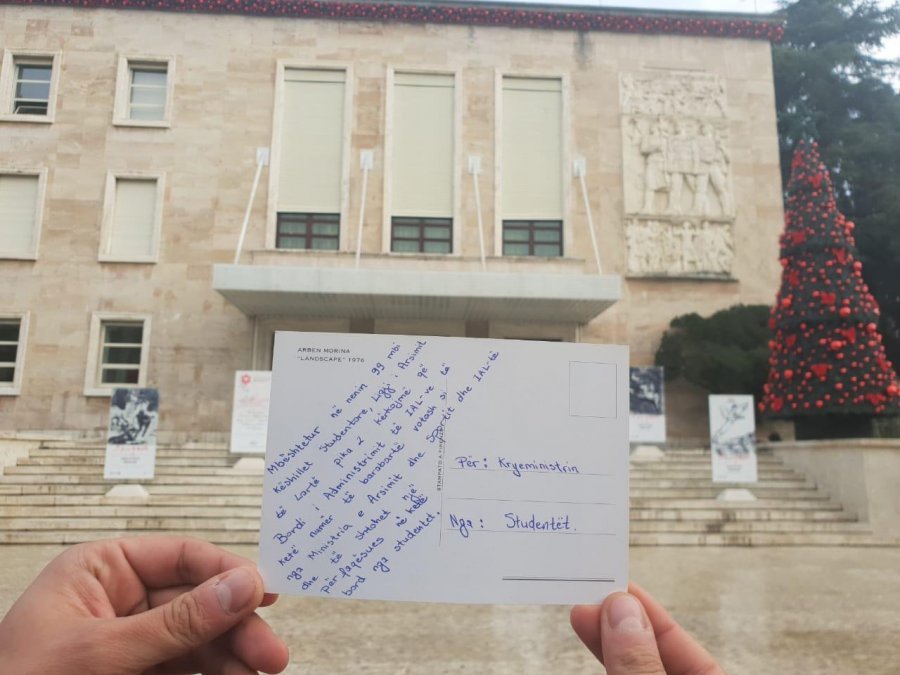 ARBEN MORINA
"LANDSCAPE" 1976
Mbështetur në nenin 99 mbi
Këshillet Studentore, Ligji i Arsimit
të Lartë pika 2 kërkojmë që
Bordi i Administrimit të IAL-ve të
Ketë numër të barabartë votash si
nga Ministria e Arsimit dhe Sportit dhe IAL-të
dhe të shtohet një
Përfaqësues në këtë
bord nga studentët.
STAMPATO A
Për: Kryeministrin
Nga: Studentët.